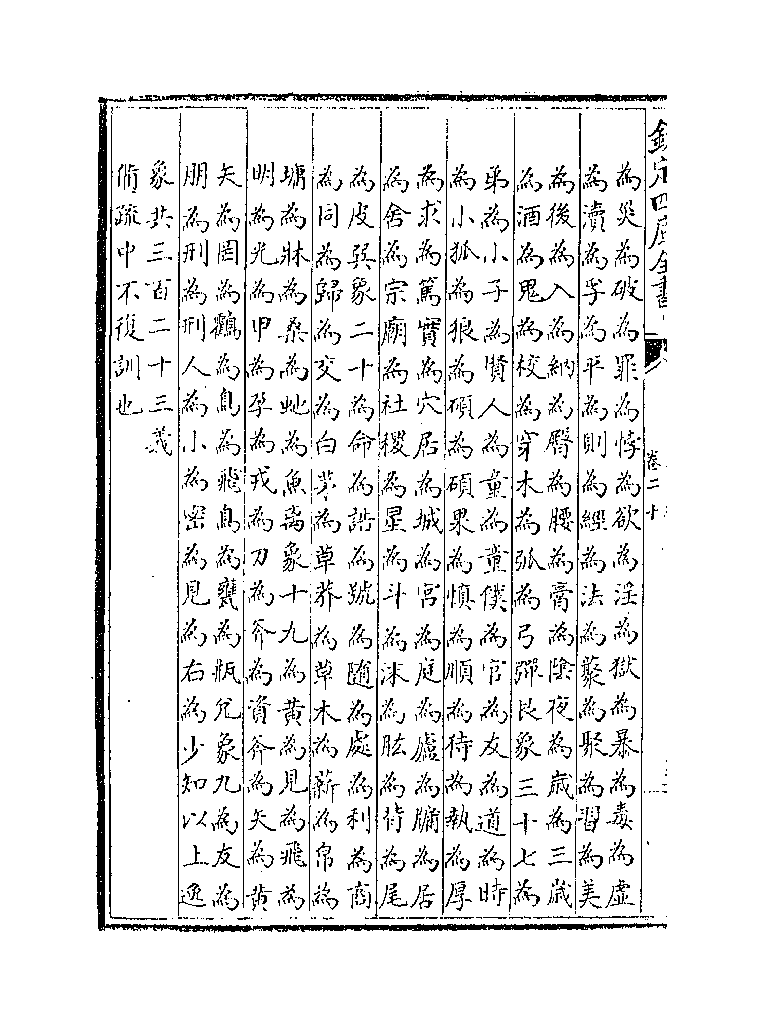 欽定四庫全書
卷二十
為災為破為罪為悖為欲為淫為獄為暴為毒為虛
為瀆為孚為平為則為經為法為藂為聚為習為美
為後為入為納為臀為腰為膏為陰夜為歲為三歲
為酒為鬼為校為穿木為弧為弓彈艮象三十七為
弟為小子為賢人為童為童僕為官為友為道為時
為小狐為狼為碩為碩果為慎為順為待為執為厚
為求為篤實為穴居為城為宮為庭為廬為牖為居
為舍為宗廟為社稷為星為斗為沬為肱為背為尾
為皮巽象二十為命為誥為號為隨為處為利為商
為同為歸為交為白茅為草莽為草木為薪為帛為
墉為牀為桑為虵為魚离象十九為黃為見為飛為
明為光為甲為孕為戎為刀為斧為資斧為矢為黃
矢為罔為鶴為鳥為飛鳥為甕為瓶兌象九為友為
朋為刑為刑人為小為密為見為右為少知以上逸
象共三百二十三義
備疏中不復訓也